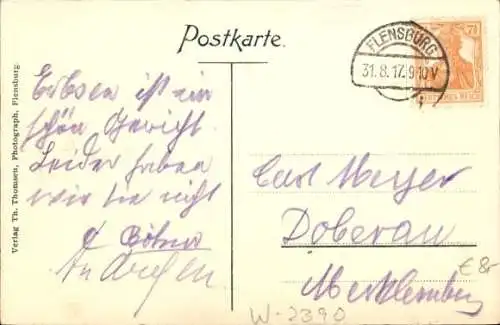 Postkarte.
FLENSBURG
31.8.17. 9-10V
7½
DEUTSCHES REICH
Verlag Th. Thomsen, Photograph, Flensburg.
Erbsen ist ein
schön Gericht
Leider haben
wir sie nicht
Carl Meyer
Doberan
Mecklenberg
€ 8,-
W-2390